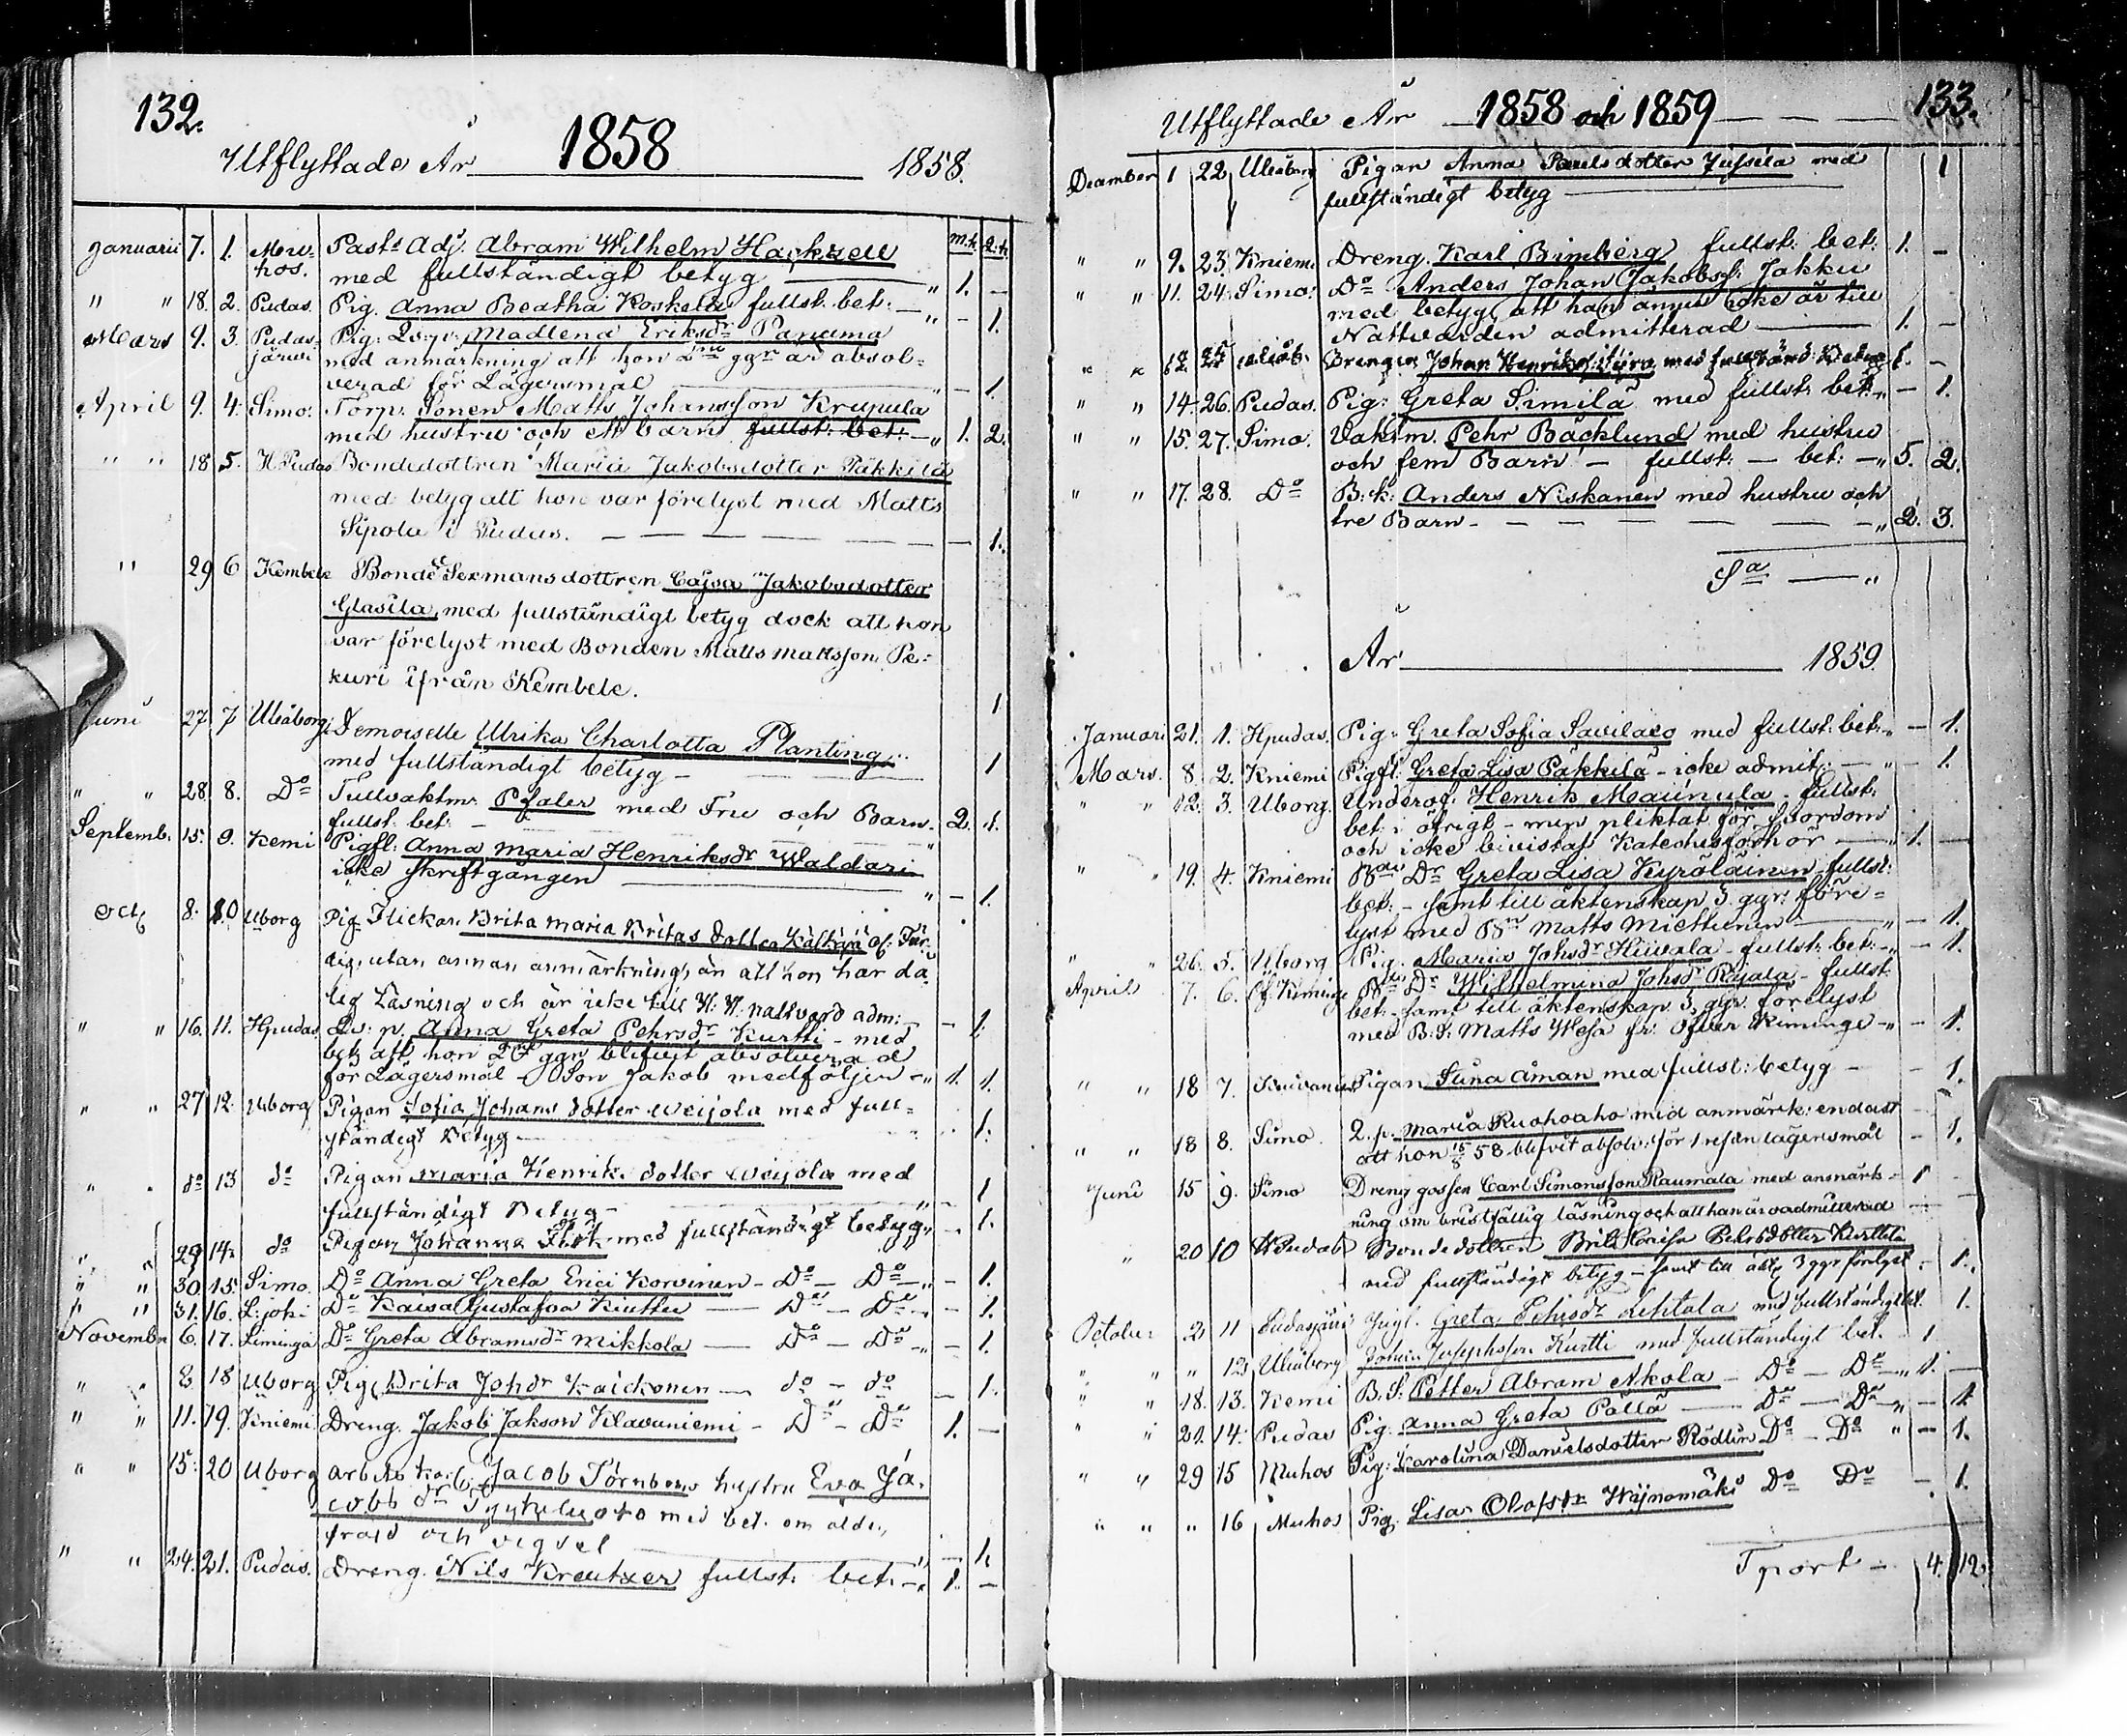 132.
Utflyttade År 1858 1858.
m.k. q.k.
Januarii 7. 1. Muhos. Past: Adj. Abram Wilhelm Hackzell
med fullständigt betyg 1. -
" " 18. 2. Pudas. Pig. Anna Beatha Koskela fullst: bet: - 1.
Mars 9. 3. Pudasjärvi Pig: Qv:p: Madlena Eriksdr Panuma
med anmärkning att hon ggr är absol=
verad för Lägersmål - 1.
April 9. 4. Simo. Torp. Sonen Matts Johansson Krupula
med hustru och ett barn fullst: bet: 1. 2.
" " 18 5. H Pudas Bondedottren Maria Jakobsdotter Päkkilä
med betyg att hon var förelyst med Matts
Sipola i Pudas. 1.
" 29 6 Kembele Bonde Sexmansdottren Cajsa Jakobsdotter
Glasila, med fullständigt betyg dock att hon
var förelyst med Bonden Matts Mattsson Pe=
kuri ifrån Kembele. 1
Juni 27 7 Uleåborg Demoiselle Ulrika Charlotta Planting
med fullständigt betyg - 1
" " 28 8. Do Tullvaktm: Pfaler med Fru och Barn.
fullst: bet: 2. 1.
Septemb. 15. 9. Kemi Pigfl: Anna Maria Henriksdr Waldari
icke skriftgången - 1.
Oct 8. 10 Uborg Pig Flickan Brita Maria Britas dotter
dig, utan annan anmärkning, än att hon har då
lig Läsning och är icke till H. H. nattvard adm: - 1.
" " 16. 11. Hpudas Qv: p. Anna Greta Pehrsdr Kurtti - med
bet att hon 2 ggr blifvit absolverad
för Lägersmål - Son Jakob medföljer - 1. 1.
" " 27 12. Uborg Pigan Sofia Johans dotter Weijola med full=
ständigt Betyg - 1.
" " do 13 do Pigan Maria Henriks dotter Weijola med
fullständigt Betyg - 1
" " 29 14. do Pigan Johanna med fullständigt betyg - 1.
" " 30 15. Simo. Do Anna Greta Erici Korvinen - Do - Do - 1.
" " 31. 16. L:joki Do Kaisa Gustafva Kinttu - Do - Do - 1.
November 6. 17. Liminga Do Greta Abramsdr Mikkola - Do - Do - 1.
" " 8 18 Uborg Pig Brita Johdr Kaickonen - do - do - 1.
" " 11. 19. Kniemi Dreng. Jakob Jakson Kilavuniemi - Do - Do 1. -
" " 15. 20 Uborg arbets karl: Jacob Törnbom hustru Eva Ja=
cobs dr med bet. om ålder,
fräjd och vigsel - 1.
" " 24. 21. Pudas. Dreng. Nils Kreutzer fullst: bet: - 1. -
133.
Utflyttade År 1858 och 1859
December 1 22 Uleåborg Pigan Anna Paulsdotter Jussila med 1
fullständigt betyg
" " 9. 23. Kniemi Dreng. Karl Brimberg fullst: bet: 1. -
" " 11. 24. Simo: Do Anders Johan Jakobss: Jakku
med betyg att han ännu icke är till
Nattvarden admitterad 1. -
" " 12. 25 uleåb. Drengen Johan Henrikss: med fullständ: 1. -
" " 14. 26. Pudas. Pig: Greta Similä med fullst: bet: - 1.
" " 15. 27. Simo. Vaktm. Pehr Bäcklund med hustru
och fem Barn - fullst: - bet: - 5. 2.
" " 17. 28. Do B:k: Anders Niskanen med hustru och
tre Barn - 2. 3.
Sa
År 1859.
Januari 21. 1. Hpudas. Pig: Greta Sofia Savilaco med fullst: bet: - 1.
Mars. 8. 2. Kniemi Pigfl: Greta Lisa Päkkilä - icke admit: - 1.
" " 12. 3. Uborg. Underof: Henrik Maunula - fullst:
bet: i öfrigt - men pliktat för hordom
och icke bivistat Katechisförhör - 1. -
" " 19. 4. Kniemi Bde Dr Greta Lisa Kyröläinen - fullst:
bet: - samt till äktenskap 3 ggr: före=
lyst med Bn Matts Miettunen - 1.
" " 26. 5. Uborg Pig. Maria Johsdr Hiivala - fullst: bet: - 1.
April 7. 6. Öf. Kiminge Bde Dr Wilhelmina Johsdr Rajala - fullst:
bet: - samt till äktenskap 3 ggr. förelyst
med B: S: Matts Wesa fr: Öfver Kiminge - 1.
" " 18 7. Pigan Stina Åman med fullst: betyg - 1.
" " 18 8. Simo. Q. p. Maria Ruohoaho med anmärk: endast
att hon 58 blifvit absolv: för 1 resan lägersmål - 1.
Juni 15 9. Simo Dreng gossen Carl Simonsson Raumala med anmärk= 1
ning om bristfällig läsning och att han är oadmitterad
" 20 10 H Pudas Bondedottren Brita Caisa Pehrsdotter Kurttila
med fullständigt betyg - samt till äkt 3 ggr förelyst - 1.
October 2 11 Pudasjärvi Pigl. Greta Lehtola med fullständigt bet. 1.
" " " 12 Uleåborg Johan Josephsson Kurtti med fullständigt bet. 1
" " 18. 13. Kemi B. S: Petter Abram Akola - Do - Do - 1. -
" " 21. 14. Pudas Pig: Anna Greta Pälla - Do - Do - 1
" " 29 15 Muhos Pig: Karolina Danielsdotter Rödlin Do - Do " - 1.
" " " 16 Muhos Pig. Lisa Olofsdr Wijnamäki Do Do - 1.
Tport - 4. 12.